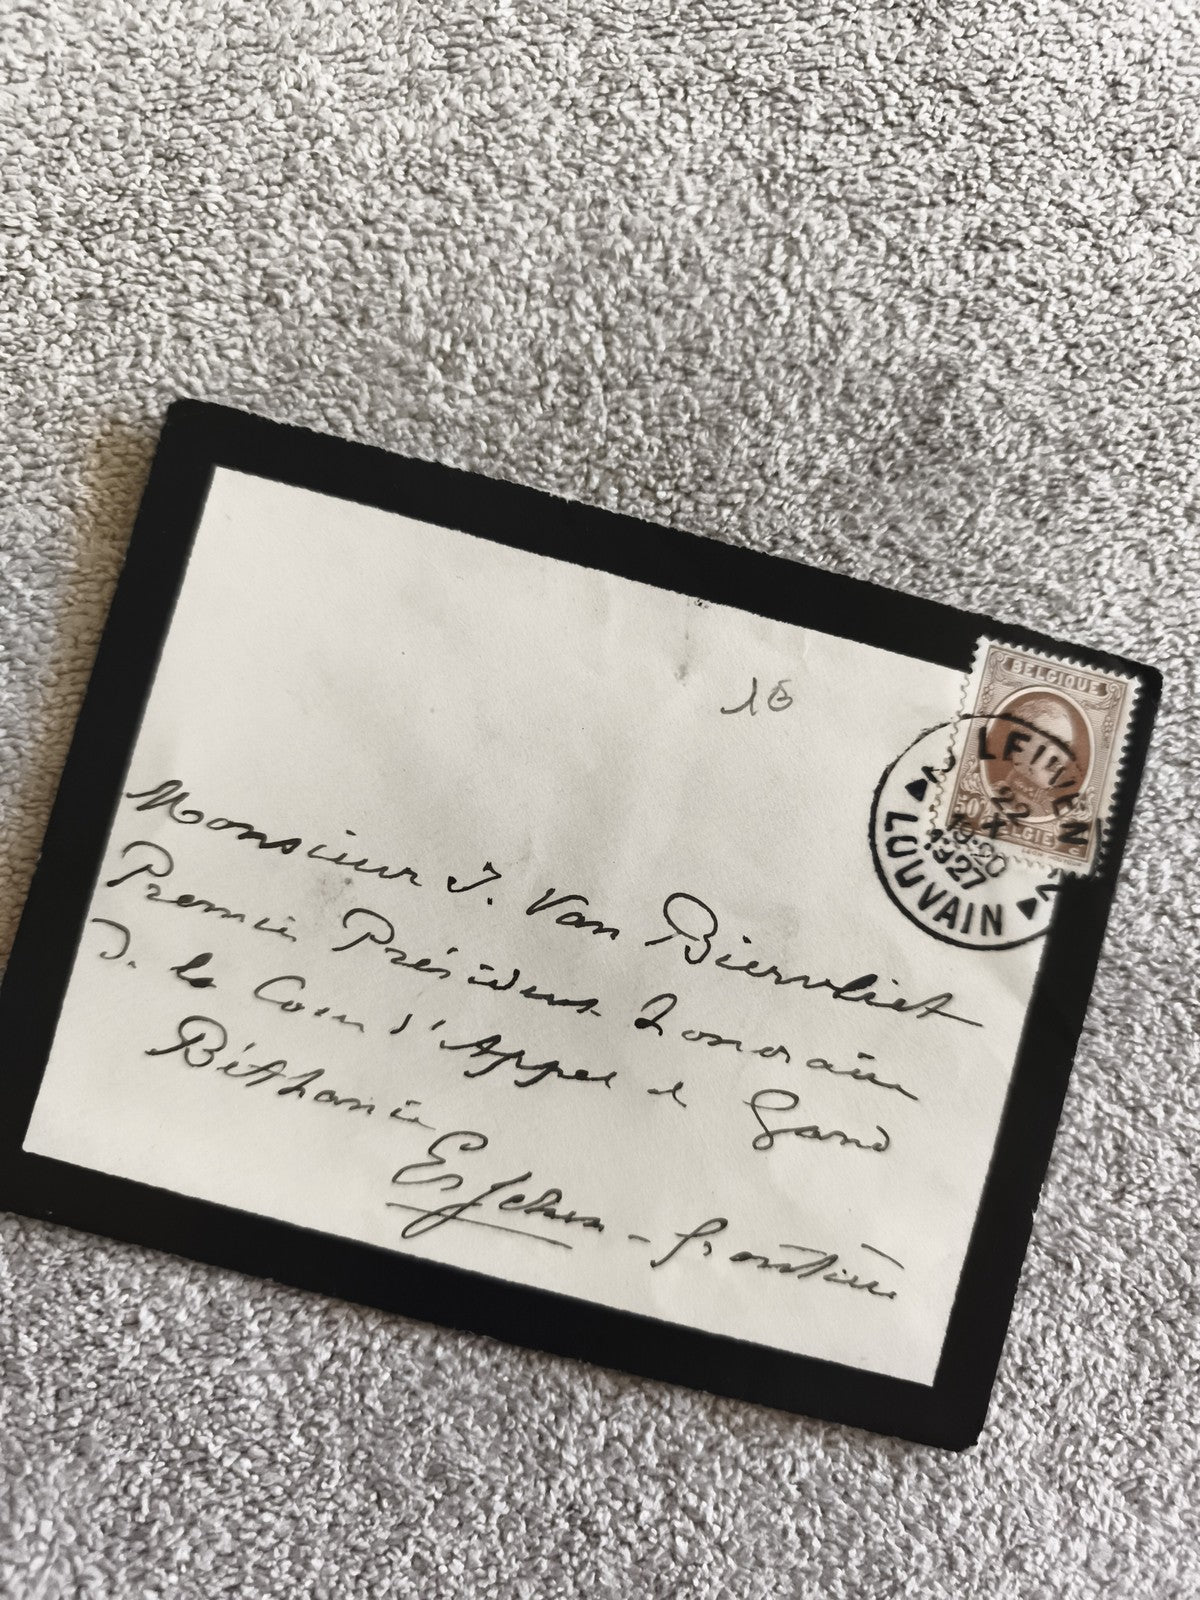 16
BELGIQUE
BELGIË
LEUVEN
22
X
19-20
1927
LOUVAIN
Monsieur J. Van Biervliet
Premier Président honoraire
de la Cour d'Appel de Gand
Béthanie
- frontière